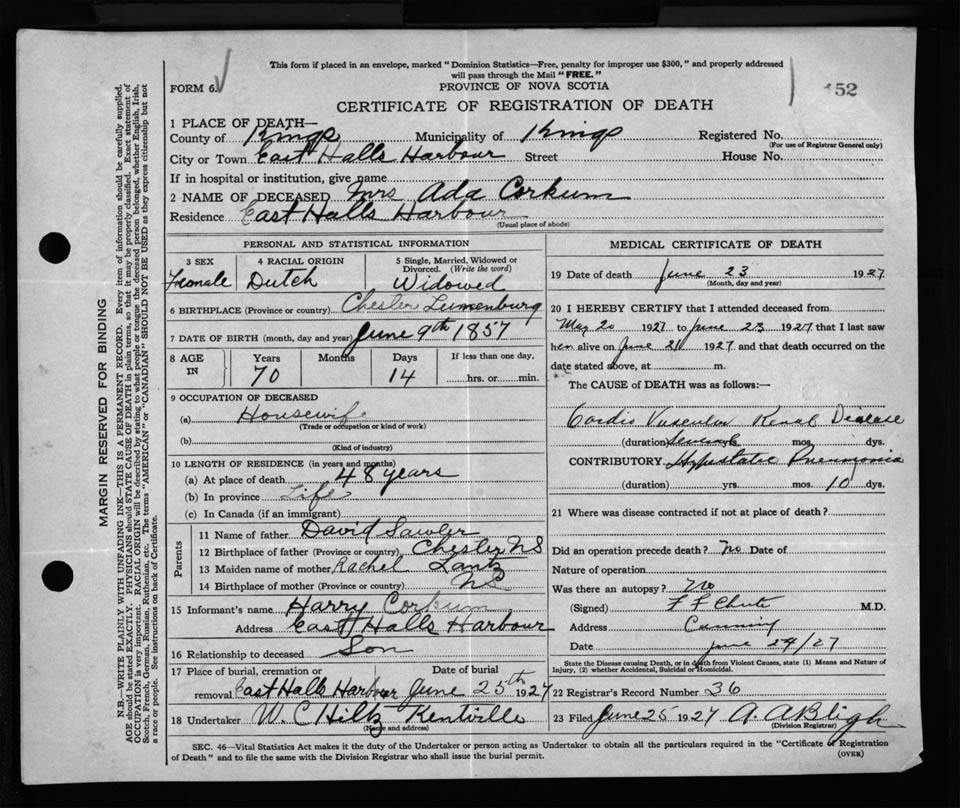 This form if placed in an envelope, marked "Dominion Statistics—Free, penalty for improper use $300," and properly addressed
will pass through the Mail "FREE."
FORM 6. PROVINCE OF NOVA SCOTIA 152
CERTIFICATE OF REGISTRATION OF DEATH
1 PLACE OF DEATH—
County of Kings Municipality of Kings Registered No.
(For use of Registrar General only)
City or Town East Halls Harbour Street House No.
If in hospital or institution, give name
2 NAME OF DECEASED Mrs Ada Corkum
Residence East Halls Harbour
(Usual place of abode)
PERSONAL AND STATISTICAL INFORMATION
3 SEX 4 RACIAL ORIGIN 5 Single, Married, Widowed or Divorced. (Write the word)
Female Dutch Widowed
6 BIRTHPLACE (Province or country) Chester Lunenburg
7 DATE OF BIRTH (month, day and year) June 9th 1857
8 AGE IN Years Months Days If less than one day,
70 14 hrs. or min.
9 OCCUPATION OF DECEASED
(a) Housewife
(Trade or occupation or kind of work)
(b)
(Kind of industry)
10 LENGTH OF RESIDENCE (in years and months)
(a) At place of death 48 years
(b) In province Life
(c) In Canada (if an immigrant)
Parents
11 Name of father David Sawler
12 Birthplace of father (Province or country) Chester NS
13 Maiden name of mother Rachel Lantz
14 Birthplace of mother (Province or country) NS
15 Informant's name Harry Corkum
Address East Halls Harbour
16 Relationship to deceased Son
17 Place of burial, cremation or removal Date of burial
East Halls Harbour June 25th 1927
18 Undertaker W. C Hiltz Kentville
(Name and address)
MEDICAL CERTIFICATE OF DEATH
19 Date of death June 23 1927
(Month, day and year)
20 I HEREBY CERTIFY that I attended deceased from
May 20 1927 to June 23 1927 that I last saw
her alive on June 21 1927 and that death occurred on the
date stated above, at m.
The CAUSE of DEATH was as follows:—
Cardio Vascular Renal Disease
(duration) Several mos. dys.
CONTRIBUTORY Hypostatic Pneumonia
(duration) yrs. mos. 10 dys.
21 Where was disease contracted if not at place of death?
Did an operation precede death? No Date of
Nature of operation
Was there an autopsy? No
(Signed) F F Chute M.D.
Address Canning
Date June 24/27
State the Disease causing Death, or in death from Violent Causes, state (1) Means and Nature of
Injury, (2) whether Accidental, Suicidal or Homicidal.
22 Registrar's Record Number 36
23 Filed June 25 1927 A. A Bligh
(Division Registrar)
SEC. 46—Vital Statistics Act makes it the duty of the Undertaker or person acting as Undertaker to obtain all the particulars required in the "Certificate of Registration
of Death" and to file the same with the Division Registrar who shall issue the burial permit. (OVER)
MARGIN RESERVED FOR BINDING
N.B.—WRITE PLAINLY WITH UNFADING INK—THIS IS A PERMANENT RECORD. Every item of information should be carefully supplied.
AGE should be stated EXACTLY. PHYSICIANS should STATE CAUSE OF DEATH in plain terms, so that it may be properly classified. Exact statement of
OCCUPATION is very important. RACIAL ORIGIN will be described by stating to what people or tongue the deceased person belonged, whether English, Irish,
Scotch, French, German, Russian, Ruthenian, etc. The terms "AMERICAN" or "CANADIAN" SHOULD NOT BE USED as they express citizenship but not
a race or people. See instructions on back of Certificate.